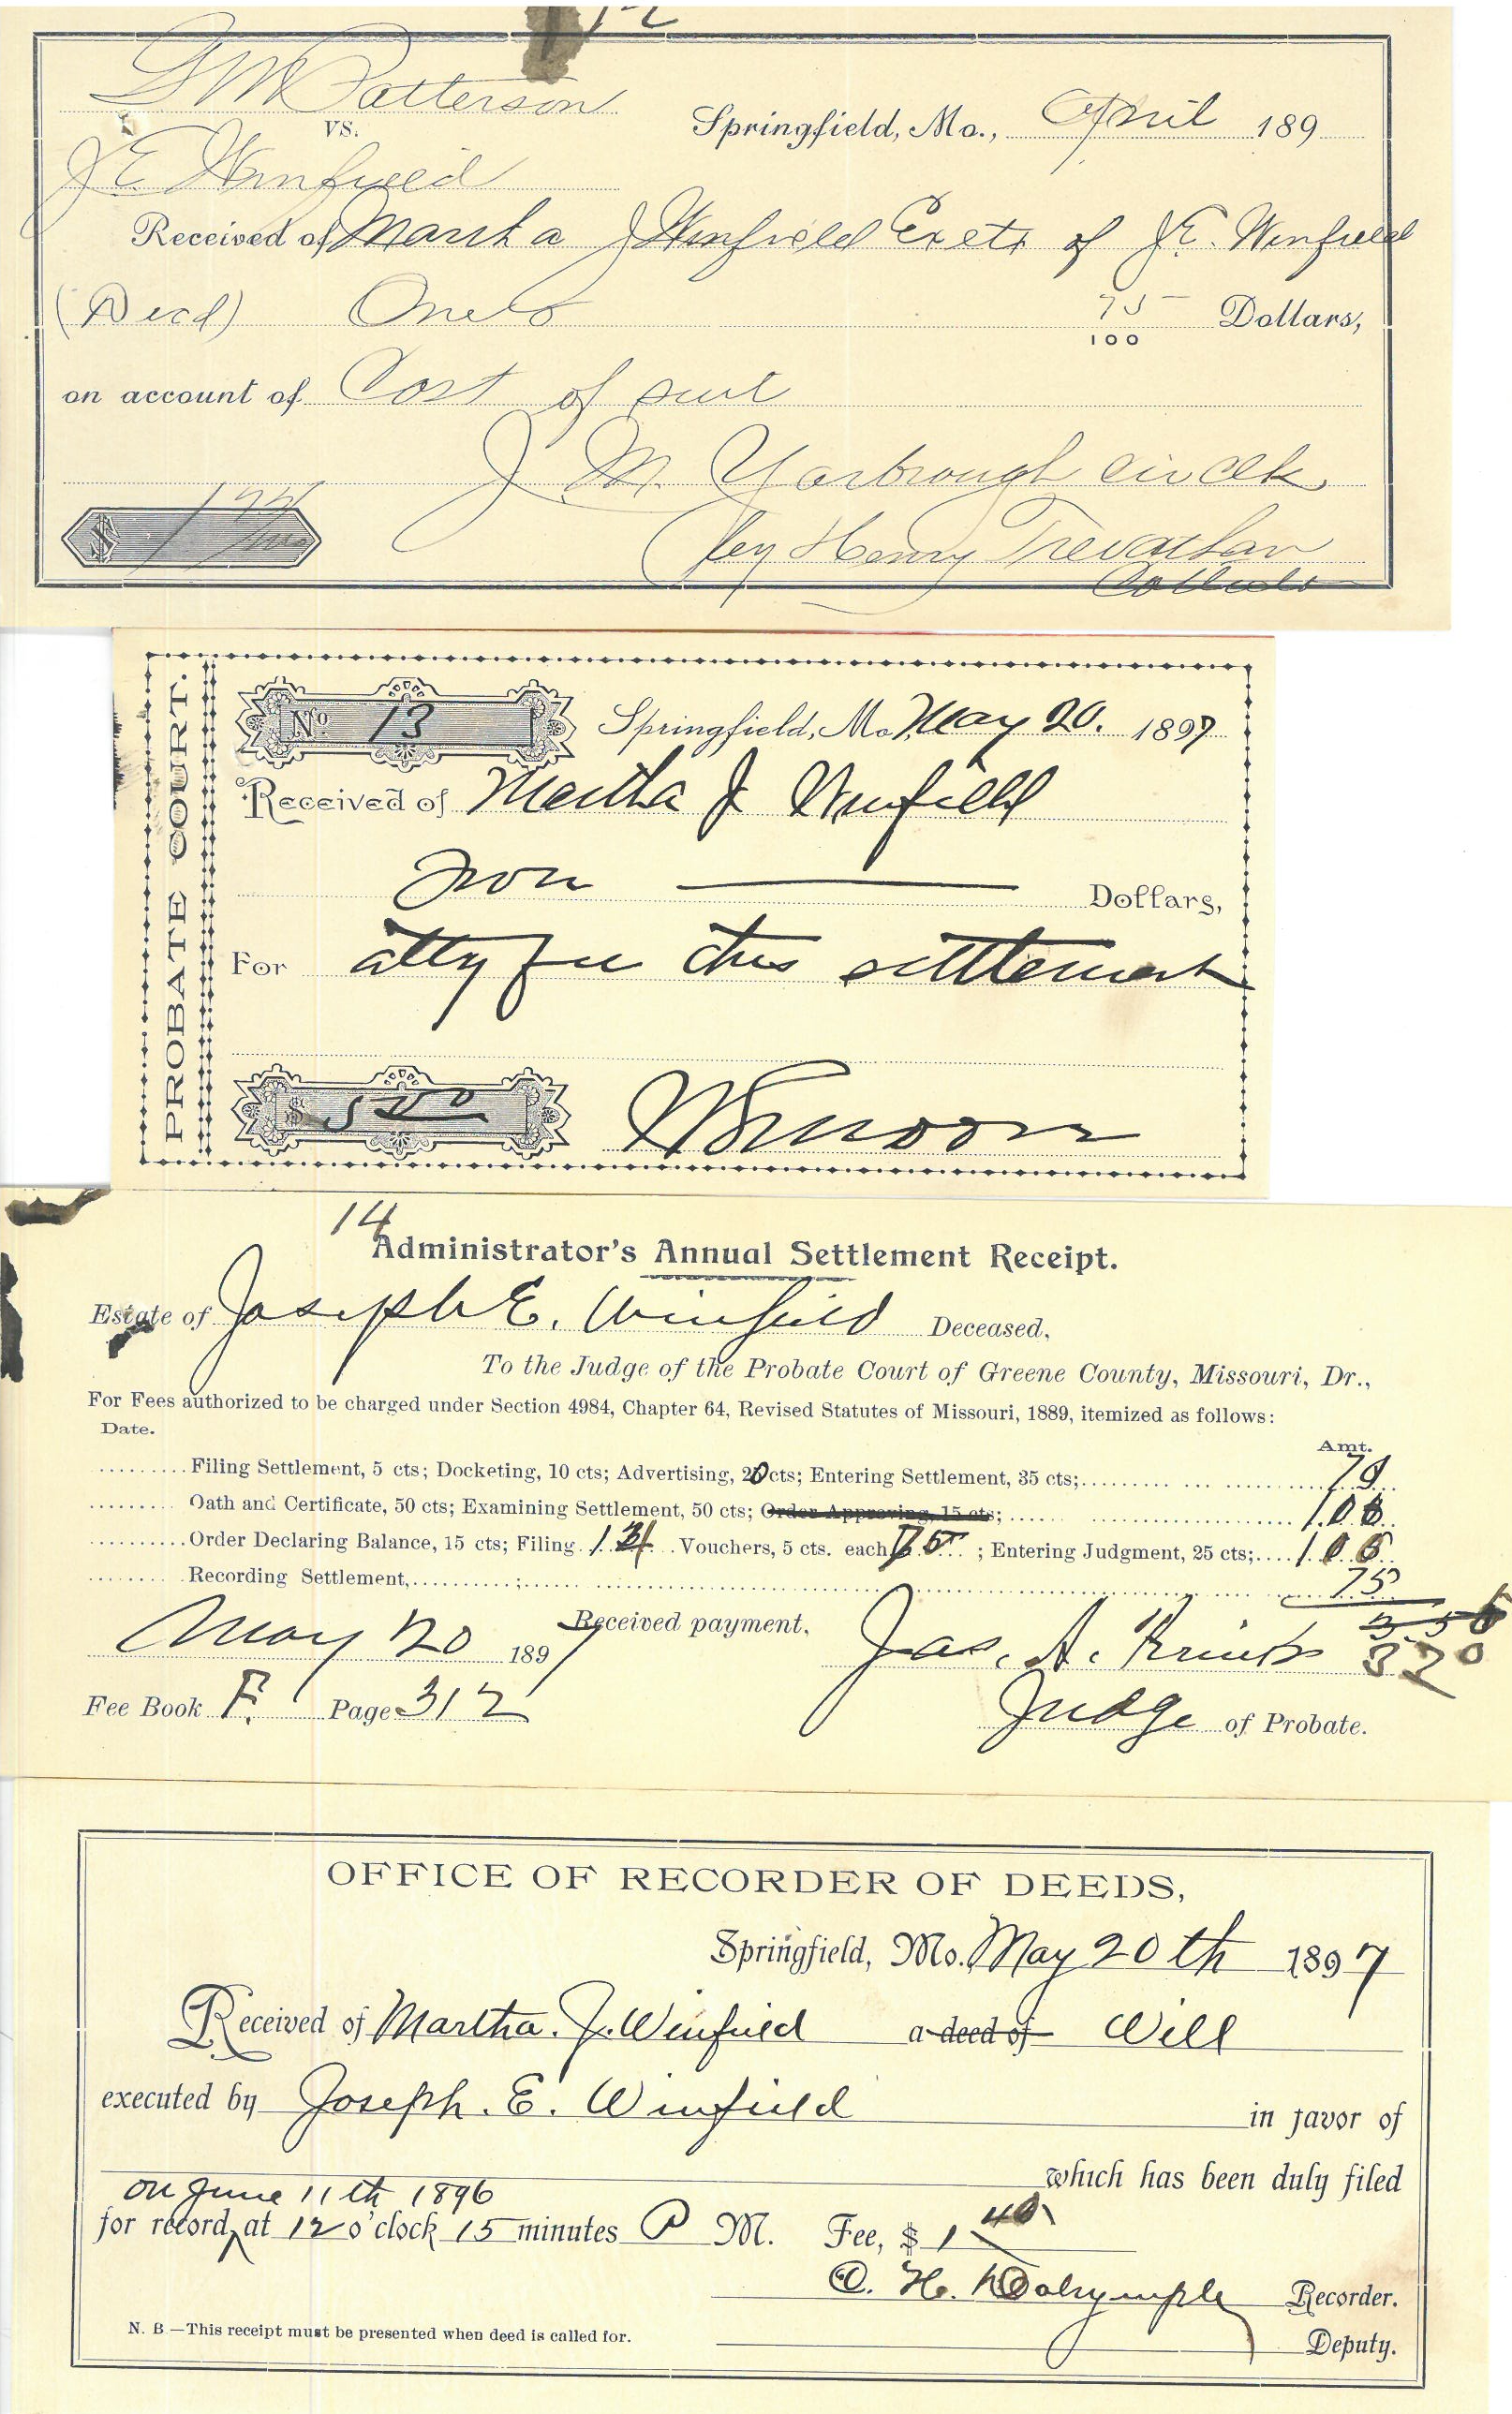 12
G M Patterson
vs.
Springfield, Mo., April 189
J E Winfield
Received of Martha J Winfield Exetx of J. E. Winfield
(Decd) One & 75/100 Dollars,
on account of Cost of suit
J. M. Yarbrough Cir Clk
$ 1 75/100
By Henry Trevathan
PROBATE COURT.
No 13 Springfield, Mo. May 20. 1897
Received of Martha J Winfield
Dollars,
For atty fee this settlement
$ 500
14
Administrator's Annual Settlement Receipt.
Estate of Joseph E. Winfield Deceased,
To the Judge of the Probate Court of Greene County, Missouri, Dr.,
For Fees authorized to be charged under Section 4984, Chapter 64, Revised Statutes of Missouri, 1889, itemized as follows:
Date. Amt.
Filing Settlement, 5 cts; Docketing, 10 cts; Advertising, 20 cts; Entering Settlement, 35 cts; 70
Oath and Certificate, 50 cts; Examining Settlement, 50 cts; Order Approving, 15 cts; 1.00
Order Declaring Balance, 15 cts; Filing Vouchers, 5 cts. each ; Entering Judgment, 25 cts;
Recording Settlement, 75
May 20 1897 Received payment,
Jas. A. 320
Fee Book F. Page 312 Judge of Probate.
OFFICE OF RECORDER OF DEEDS,
Springfield, Mo. May 20th 1897
Received of Martha. J. Winfield a deed of Will
executed by Joseph. E. Winfield in favor of
which has been duly filed
on June 11th 1896
for record, at 12 o'clock 15 minutes P M. Fee, $ 1 40
C. H. Dalrymple Recorder.
N. B.—This receipt must be presented when deed is called for.
Deputy.